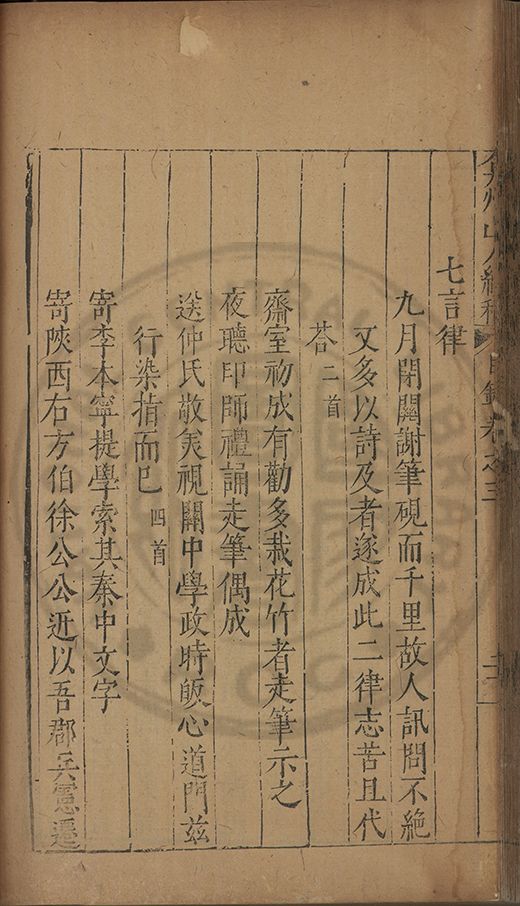 弇州山人續稿 目錄卷之三 二
七言律
九月閉關謝筆硯而千里故人訊問不絕
又多以詩及者遂成此二律志苦且代
荅二首
齋室初成有勸多栽花竹者走筆示之
夜聽印師禮誦走筆偶成
送仲氏敬美視關中學政時皈心道門兹
行染指而已四首
寄李本寧提學索其秦中文字
寄陝西右方伯徐公公近以吾郡兵憲遷